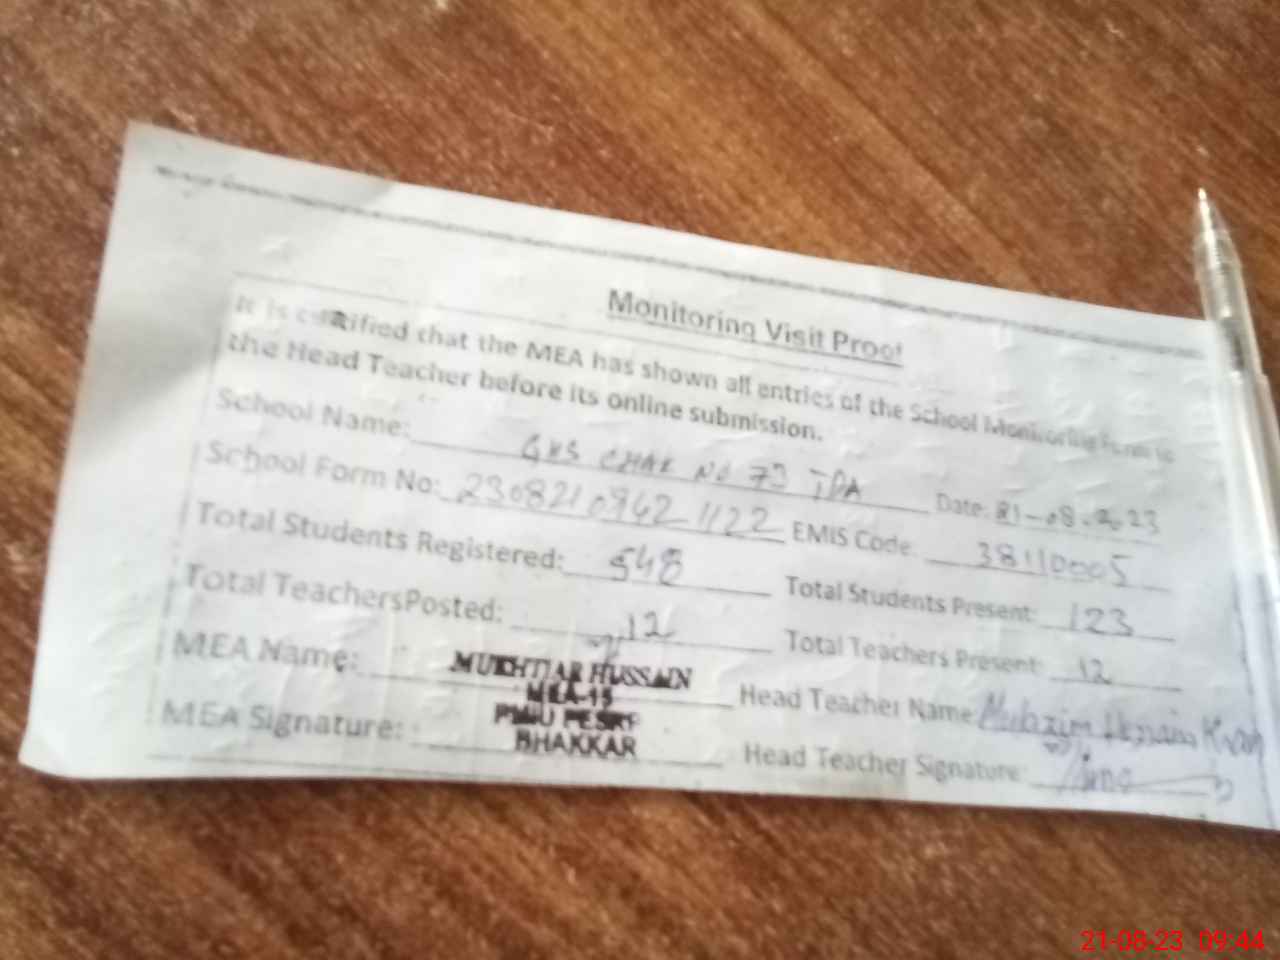 Monitoring Visit Proof
It is certified that the MEA has shown all entries of the School Monitoring Form to
the Head Teacher before its online submission.
School Name: GHS CHAK NO 73 TDA Date: 21-08-2023
School Form No: 2308210942 1122 EMIS Code: 38110005
Total Students Registered: 548 Total Students Present: 123
Total TeachersPosted: 12 Total Teachers Present: 12
MEA Name: MUKHTIAR HUSSAIN Head Teacher Name:
MEA-15
PMIU PESRP
MEA Signature: BHAKKAR Head Teacher Signature:
21-08-23 09:44